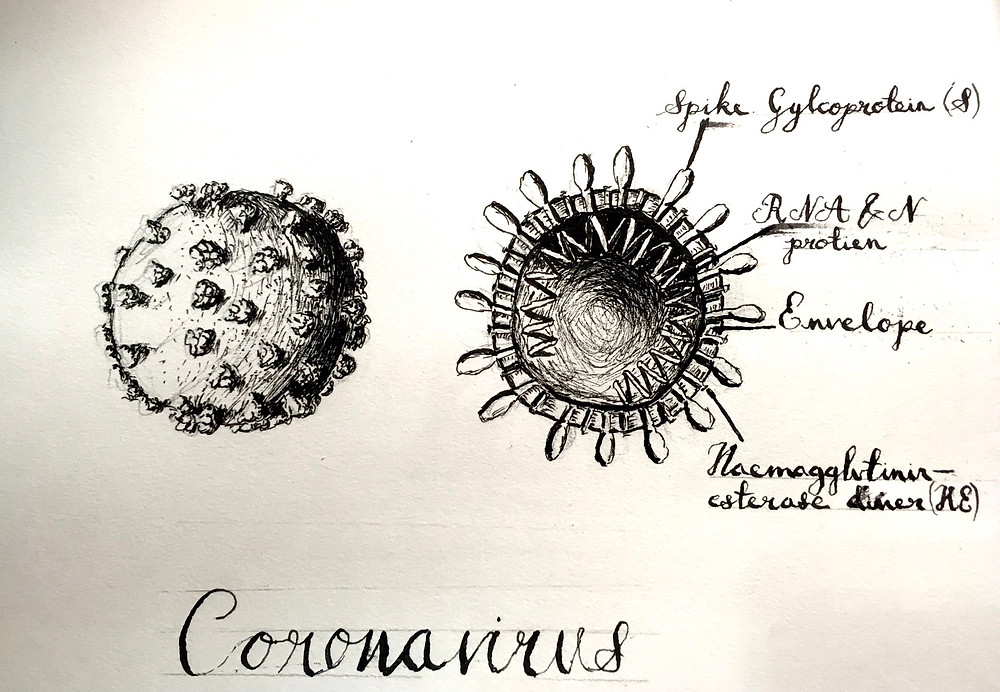 Spike Gylcoprotein (S)
RNA & N
protien
Envelope
Haemagglutinin-
esterase dimer (HE)
Coronavirus